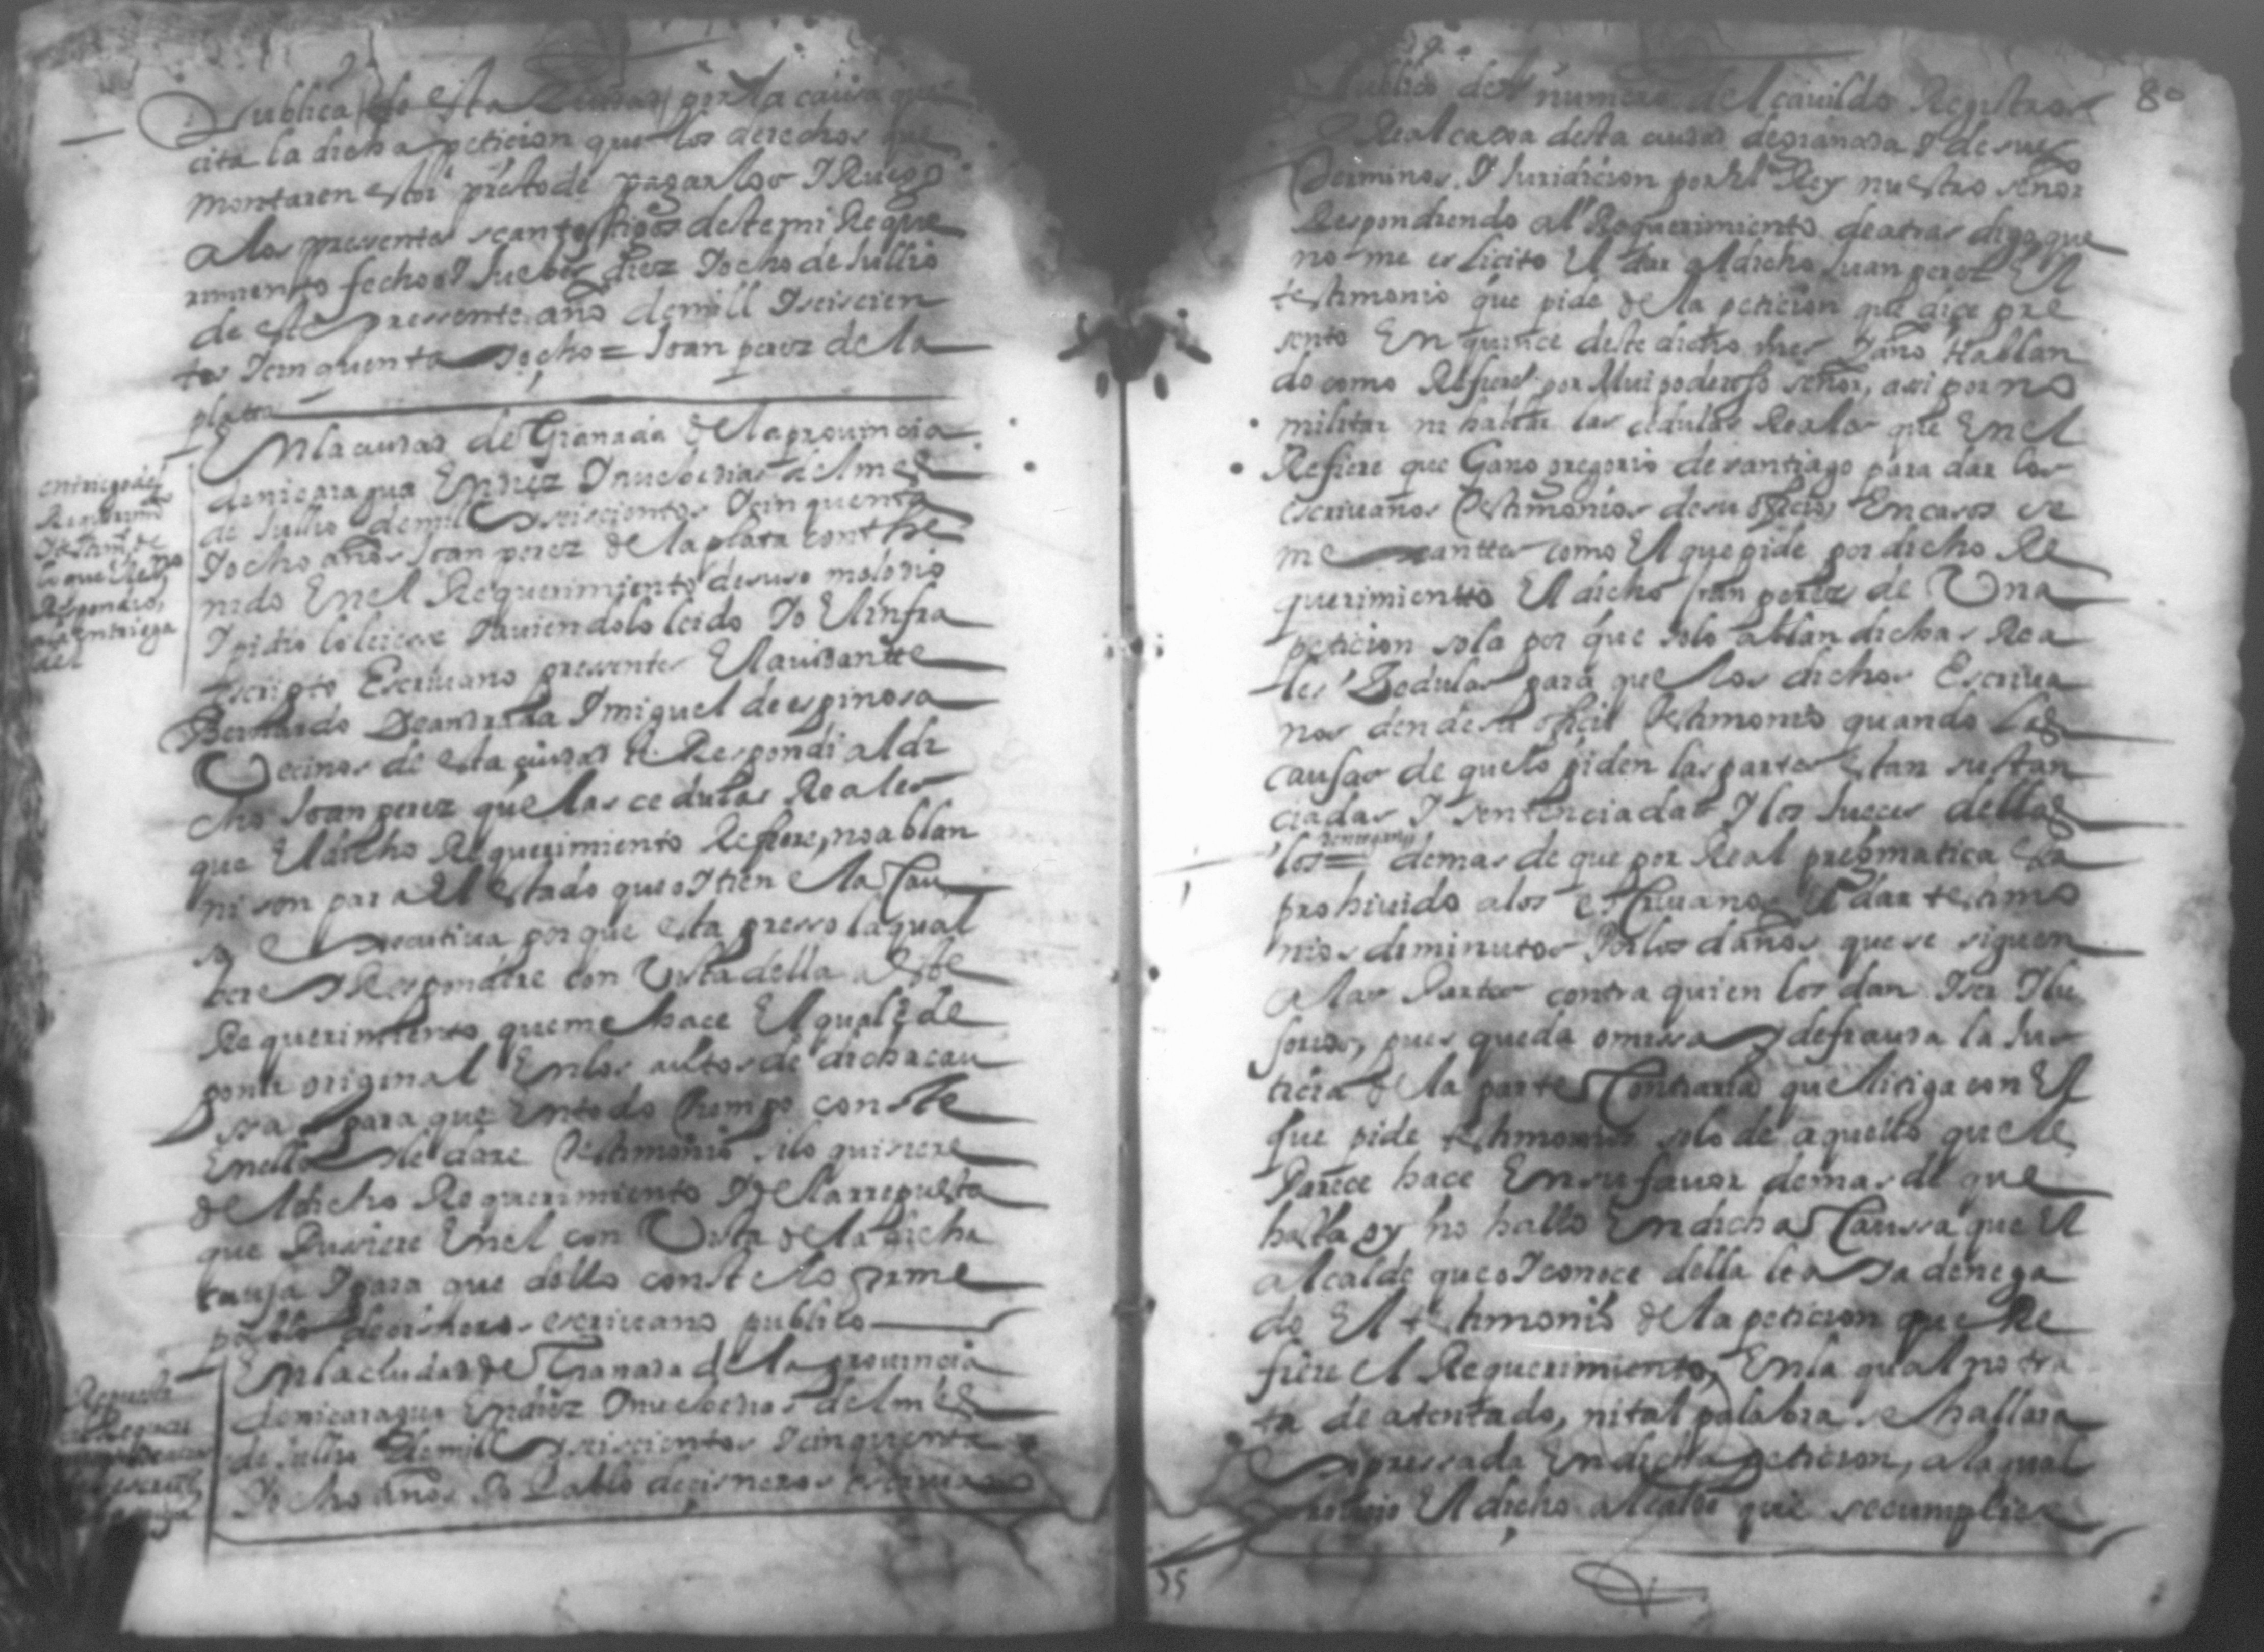 Publica de esta ciudad por la caussa que
cita la dicha peticion que los derechos que
montaren estoi presto de pagarlos I Ruego
a los presentes sean testigos deste mi Reque
rimiento fecho oI Juebes diez Iocho de Jullio
de este pressente año de mill Iseiscien
tos Icinquenta Iocho = Joan perez de la
plata
En la ciudad de Granada de la prouincia
de nicaragua En diez Inuebe dias del mes
de Jullio de mill Iseiscientos Icinquenta
Iocho años Joan perez de la plata conthe
nido En el Requerimiento de suso me lo dio
I pidio lo leiesse Iauiendolo leido Io El infra
escripto Escriuano presentes El aiudante
Bernardo De andrada I miguel de espinosa
Vecinos de esta ciudad le Respondi al di
cho Joan perez que las cedulas Reales
que El dicho Requerimiento Refiere, no ablan
ni son para El estado que oI tiene la Cau
sa Executiua porque esta presso la qual
bere I Respondere con Vista della a este
Requerimiento que me hace El qual se le
pondra original En los autos de dicha cau
ssa para que En todo tiempo conste
En ellos I le dare testimonio si lo quisiere
del dicho Requerimiento I de la rrepuesta
que Pusiere En el con Vista de la dicha
causa I para que dello conste lo firme
pablo de cisneros escriuano publico
En la ciudad de Granada de la prouincia
de nicaragua En diez Inuebe dias del mes
de Jullio de mill Iseiscientos Icinquenta
Iocho años Io Pablo de cisneros escriuano
entriego del
Requerimto
I testimo de
lo que se le
Respondio,
a la entriega
del
Repuesta
al Requeri
80
Publico del numero del cauildo Registros
Real caxa desta ciudad de granada I de sus
Terminos I Juridicion por El Rey nuestro señor
Respondiendo al Requerimiento de atras digo que
no me es licito El dar al dicho Juan perez El
testimonio que pide de la peticion que dice pre
sento En quince deste dicho mes I año Hablan
do como Refiere por Mui poderoso señor, asi por no
militar ni hablar las cedulas Reales que En el
Refiere que Gano gregorio de santiago para dar los
escriuanos testimonios de su oficio En casos se
me xantes como El que pide por dicho Re
querimiento El dicho Juan perez de Una
peticion sola por que solo ablan dichas Rea
les Zedulas para que los dichos Escriua
nos den de su oficio testimonio quando las
causas de que lo piden las partes estan sustan
ciadas I sentenciadas I los Jueces dellas
denegaren
los = demas de que por Real pregmatica esta
prohiuido a los escriuanos El dar testimo
nios diminutos Por los daños que se siguen
a las Partes contra quien los dan I ser Ilu
sorios, pues queda omissa I defrauda la Jus
ticia de la parte Contraria que litiga con El
que pide testimonio solo de aquello que le
Parece hace En su fauor demas de que
hasta oy no hallo En dicha Caussa que El
alcalde que oI conoce della le aIa denega
do El testimonio de la peticion que Re
fiere el Requerimiento, En la qual no tra
ta de atentado, ni tal palabra se hallara
Expressada En dicha peticion, a la qual
probeio El dicho alcalde que se cumpliese